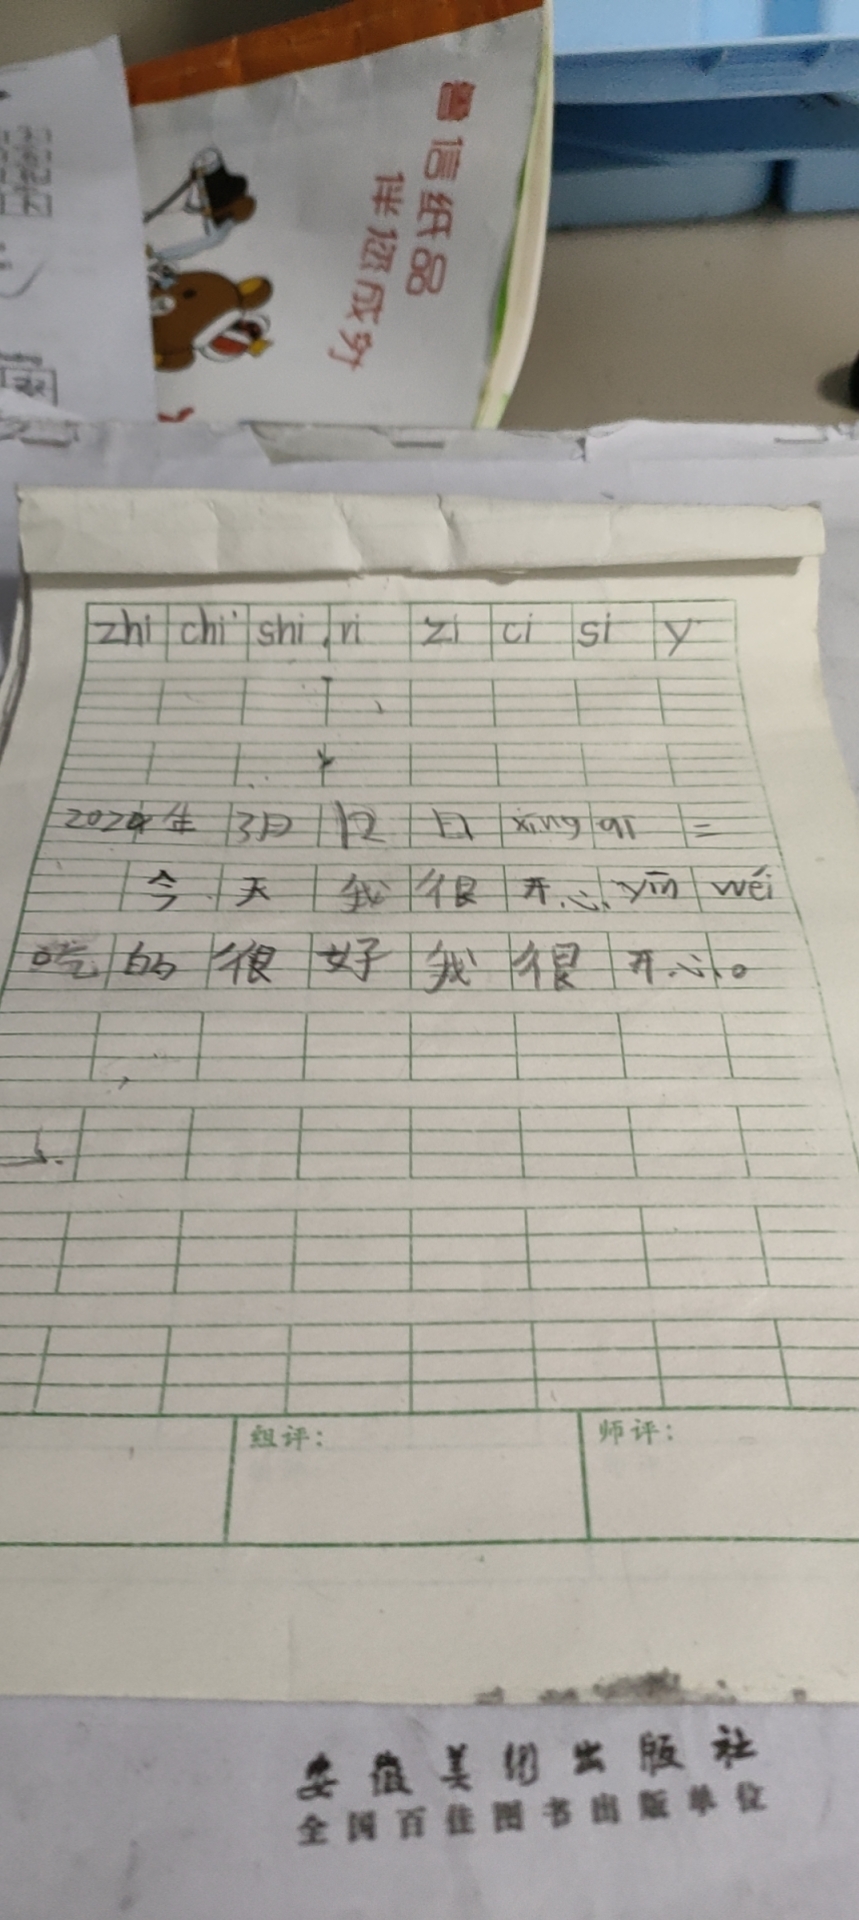 曾信纸品
伴您成功
zhi chi shi ri zi ci si y
2024年 3月 12 日 xing qi 二
今天我很开心 yīn wéi
吃的很好我很开心。
组评：
师评：
安徽美术出版社
全国百佳图书出版单位